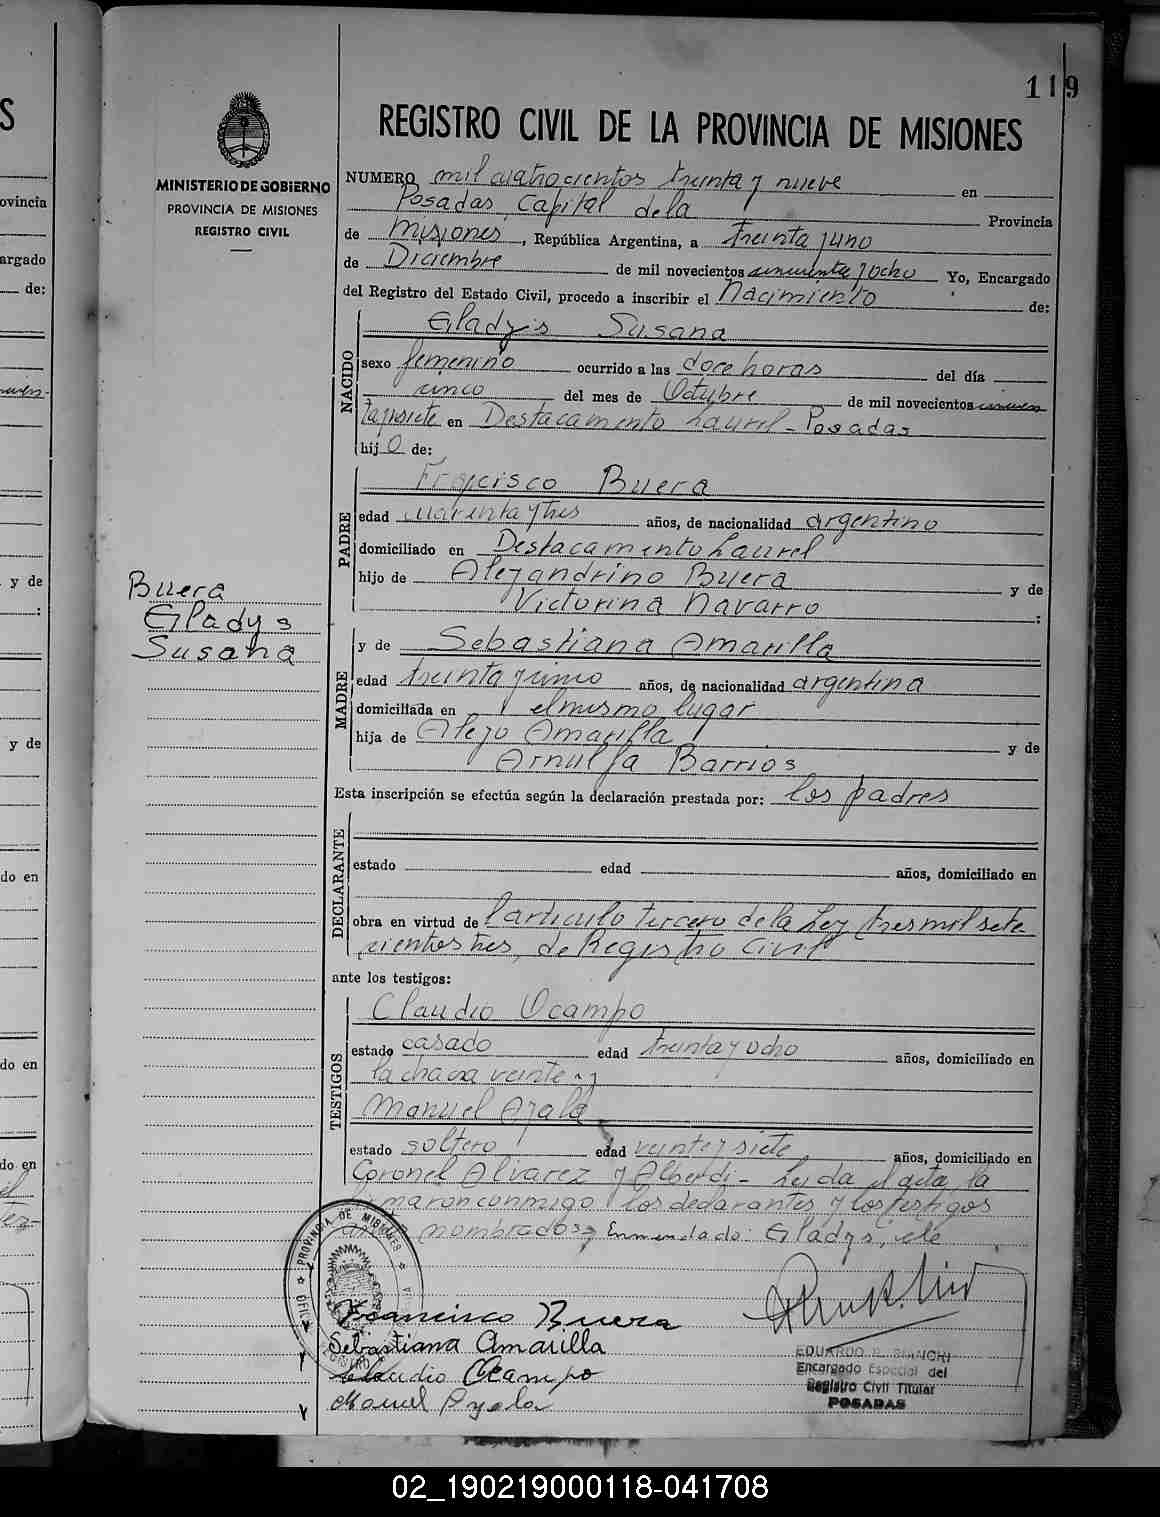 119
REGISTRO CIVIL DE LA PROVINCIA DE MISIONES
MINISTERIO DE GOBIERNO
PROVINCIA DE MISIONES
REGISTRO CIVIL
NUMERO mil cuatrocientos treinta y nueve en
Posadas, Capital de la Provincia
de Misiones, República Argentina, a treinta y uno
de Diciembre de mil novecientos cincuenta y ocho Yo, Encargado
del Registro del Estado Civil, procedo a inscribir el Nacimiento de:
NACIDO
Gladys Susana
sexo femenino ocurrido a las doce horas del día
cinco del mes de Octubre de mil novecientos cincuen
ta y siete en Destacamento Laurel - Posadas
hij a de:
PADRE
Francisco Buera
edad cuarenta y tres años, de nacionalidad argentino
domiciliado en Destacamento Laurel
hijo de Alejandrino Buera y de
Victorina Navarro :
Buera
Gladys
Susana
MADRE
y de Sebastiana Amarilla
edad treinta y cinco años, de nacionalidad argentina
domiciliada en el mismo lugar
hija de Alejo Amarilla y de
Arnulfa Barrios
Esta inscripción se efectúa según la declaración prestada por: los padres
DECLARANTE
estado edad años, domiciliado en
obra en virtud de l articulo tercero de la Ley tres mil sete
cientos tres, de Registro Civil
ante los testigos:
TESTIGOS
Claudio Ocampo
estado casado edad treinta y ocho años, domiciliado en
la chacra veinte y
Manuel Ayala
estado soltero edad veinte y siete años, domiciliado en
Coronel Alvarez y Alberdi - Leida el acta la
firmaron conmigo los declarantes y los testigos
nombrados Enmendado: Gladys, vle
PROVINCIA DE MISIONES
Francisco Buera
Sebastiana Amarilla
Claudio Ocampo
Manuel Ayala
EDUARDO R. BIANCHI
Encargado Especial del
Registro Civil Titular
POSADAS
S
rovincia
argado
de:
y de
:
y de
do en
do en
do en
02_190219000118-041708